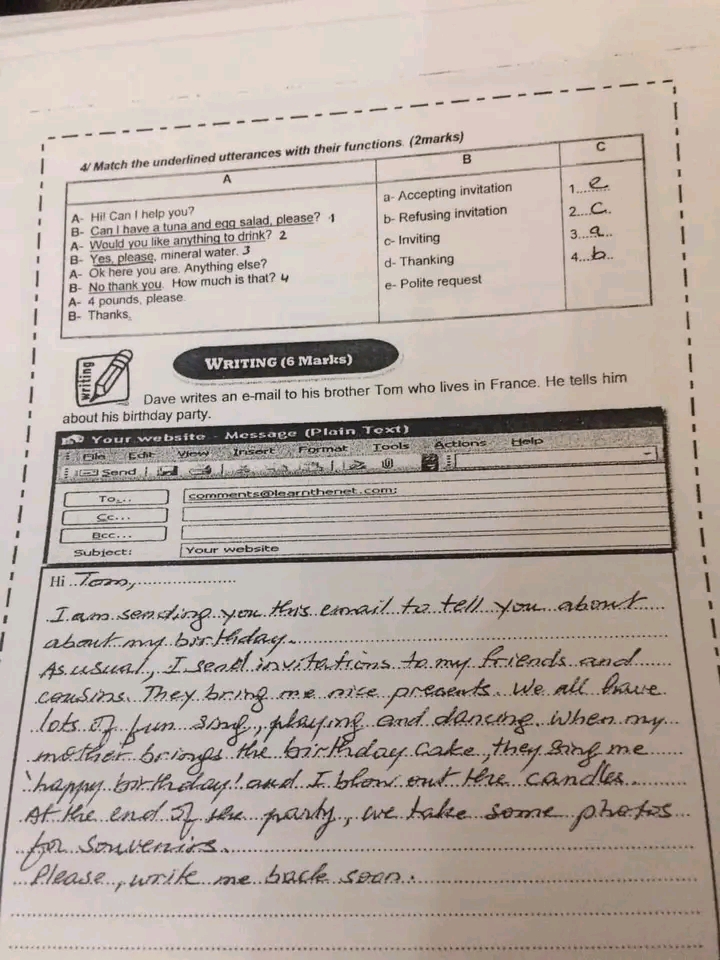 4/ Match the underlined utterances with their functions. (2marks)
A
B
C
A- Hi! Can I help you?
B- Can I have a tuna and egg salad, please? 1
A- Would you like anything to drink? 2
B- Yes, please, mineral water. 3
A- Ok here you are. Anything else?
B- No thank you. How much is that? 4
A- 4 pounds, please.
B- Thanks.
a- Accepting invitation
b- Refusing invitation
c- Inviting
d- Thanking
e- Polite request
1....e....
2...c...
3...a...
4...b...
writing
WRITING (6 Marks)
Dave writes an e-mail to his brother Tom who lives in France. He tells him
about his birthday party.
Your website - Message (Plain Text)
File Edit View Insert Format Tools Actions Help
Send
To...
comments@learnthenet.com;
Cc...
Bcc...
Subject: Your website
Hi ..Tom,..................
I am sending you this email to tell you about
about my birthday.
As usual, I send invitations to my friends and
cousins. They bring me nice presents. We all have
lots of fun song, playing and dancing. When my
mother brings the birthday cake, they sing me
'happy birthday' and I blow out the candles.
At the end of the party, we take some photos
for souvenirs.
Please, write me back soon.